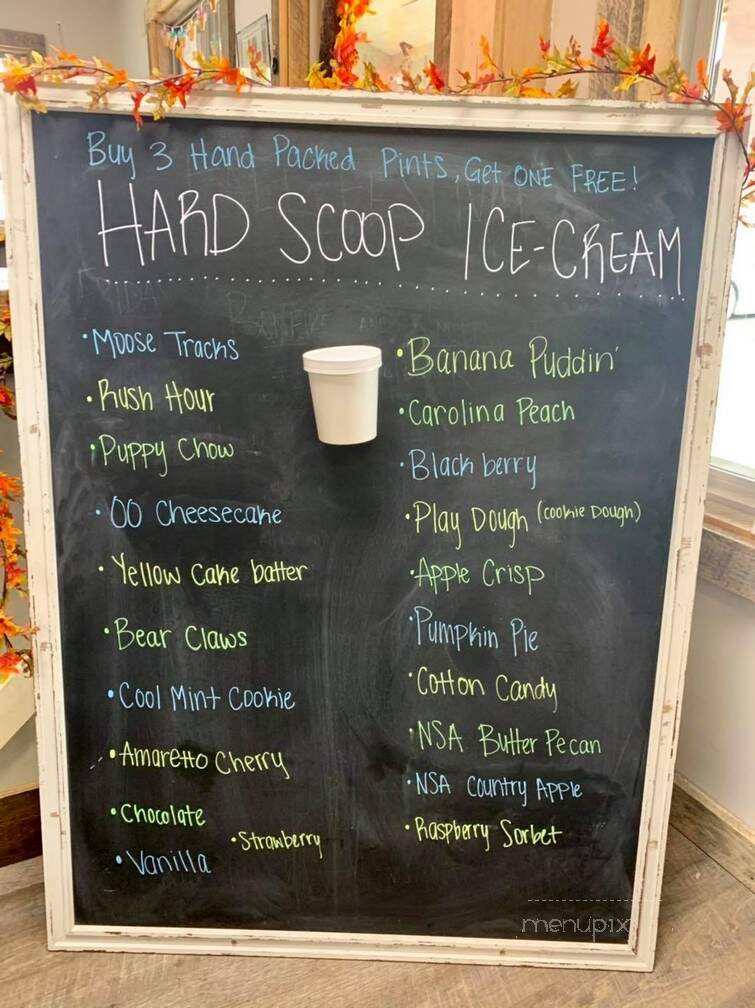 Buy 3 Hand Packed Pints, Get ONE FREE!
HARD SCOOP ICE-CREAM
• Moose Tracks
• Rush Hour
• Puppy Chow
• OO Cheesecake
• Yellow Cake batter
• Bear Claws
• Cool Mint Cookie
• Amaretto Cherry
• Chocolate
• Strawberry
• Vanilla
• Banana Puddin'
• Carolina Peach
• Blackberry
• Play Dough (cookie Dough)
• Apple Crisp
• Pumpkin Pie
• Cotton Candy
• NSA Butter Pecan
• NSA Country Apple
• Raspberry Sorbet
menupix